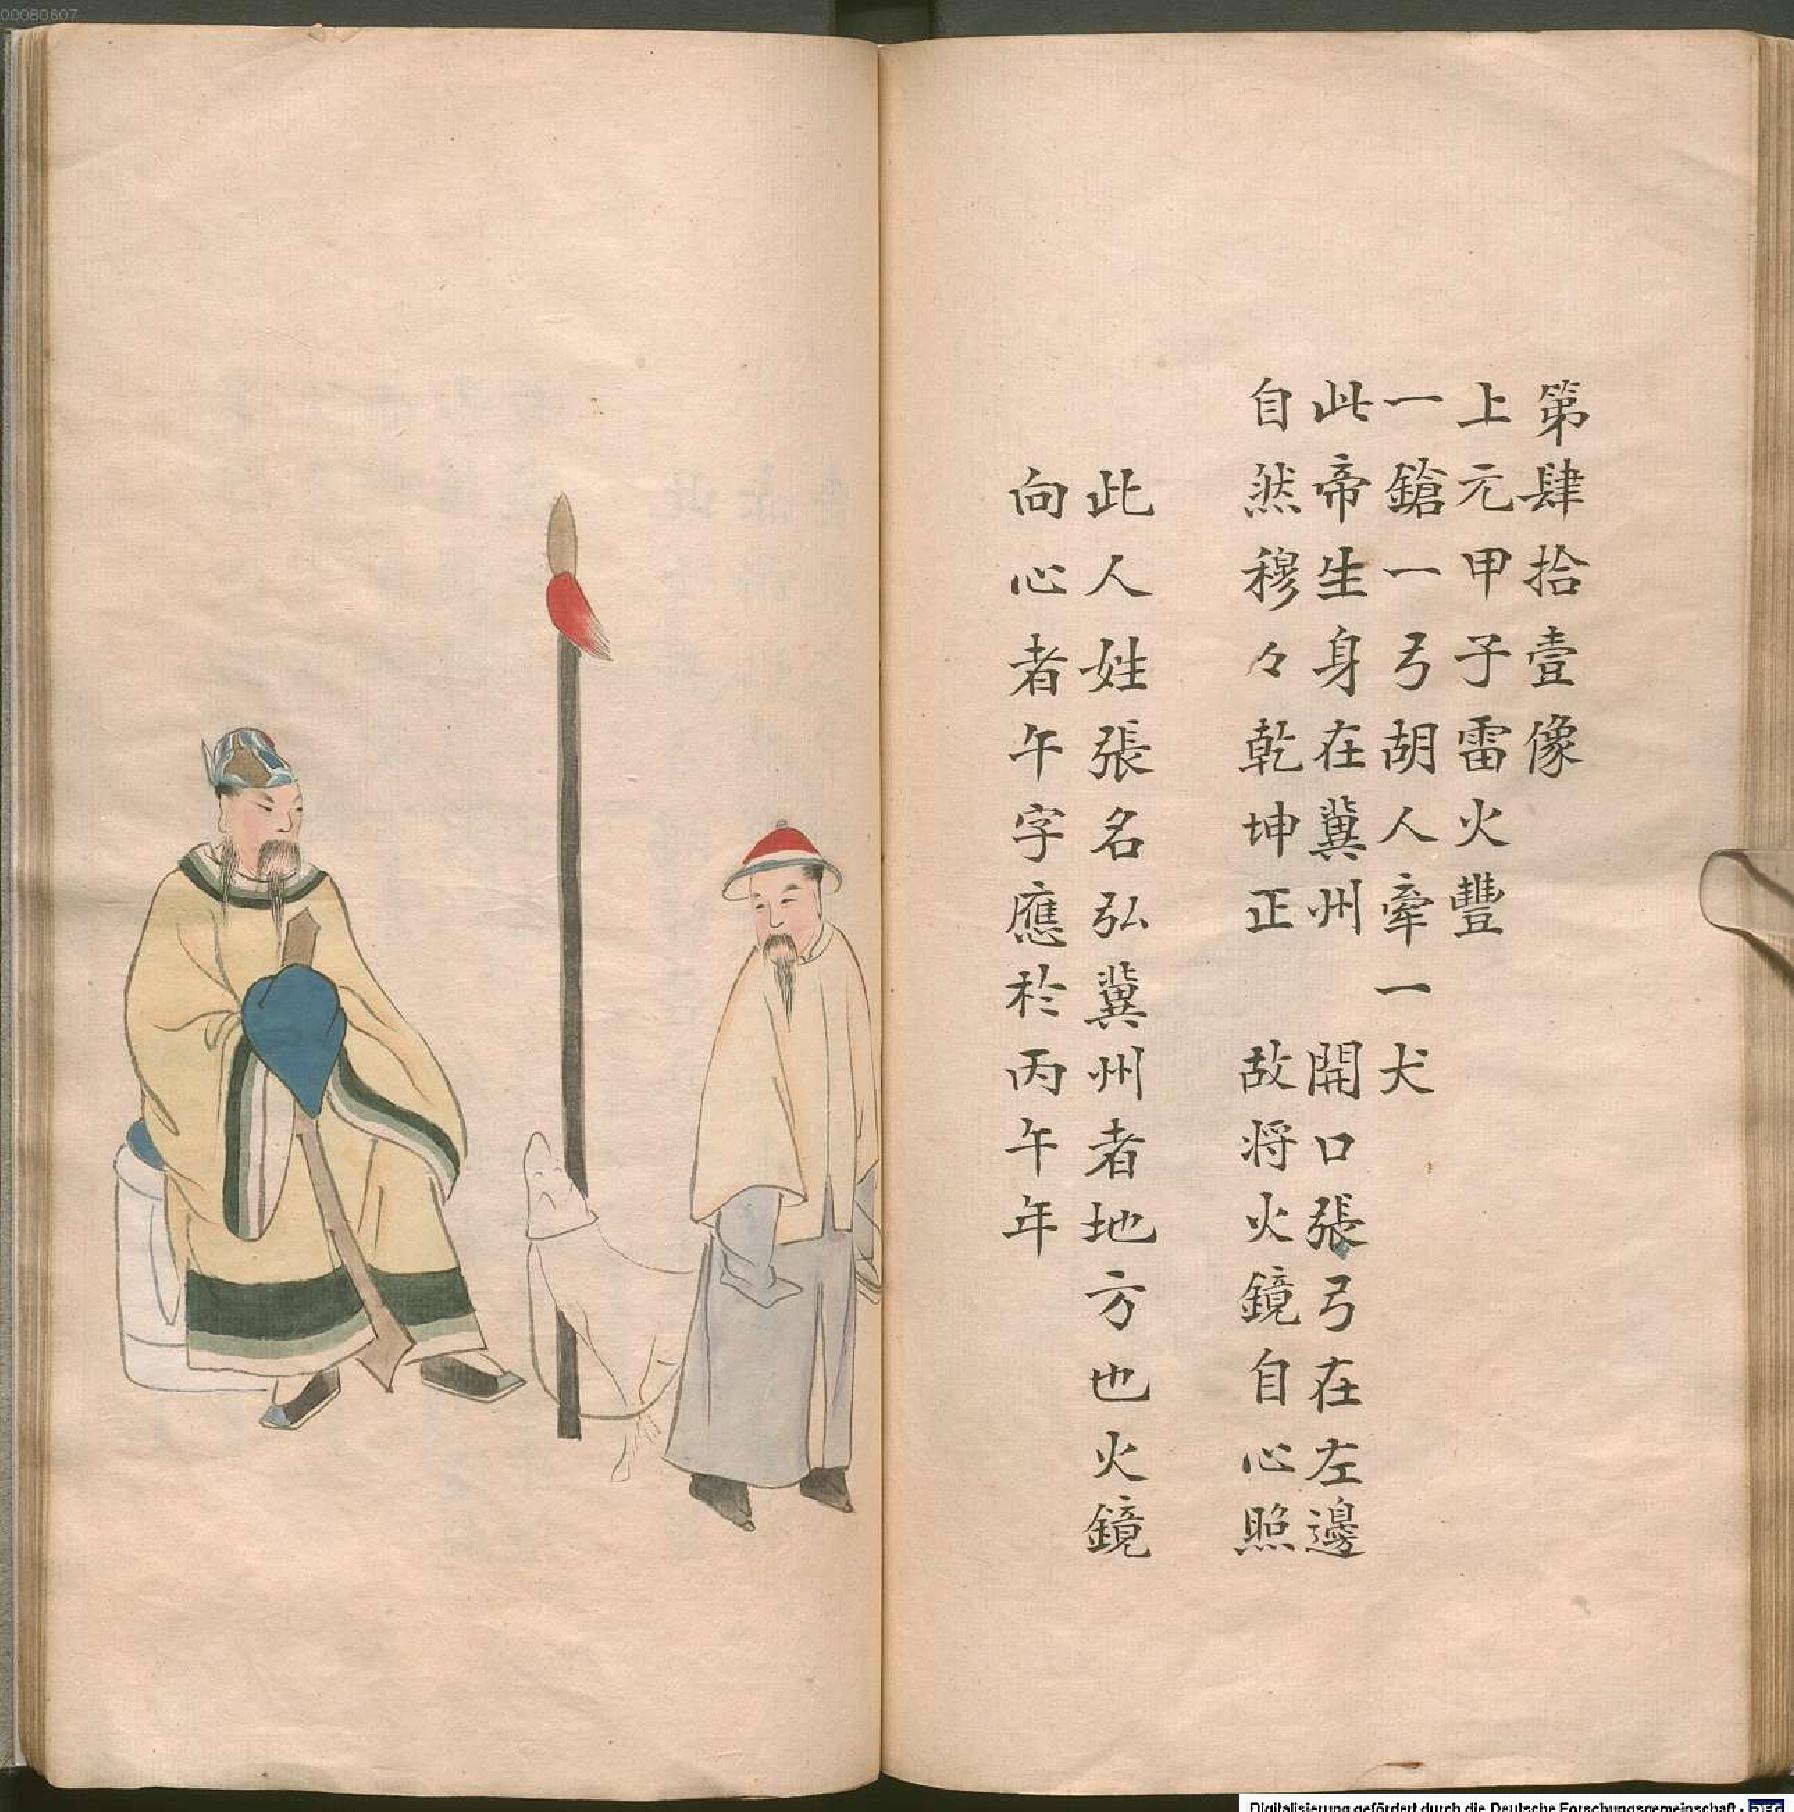 00080607
第肆拾壹像
上元甲子雷火豐
一鎗一弓胡人牽一犬
此帝生身在冀州　開口張弓在左邊
自然穆々乾坤正　故将火鏡自心照
此人姓張名弘冀州者地方也火鏡
向心者午字應於丙午年
Digitalisierung gefördert durch die Deutsche Forschungsgemeinschaft - DFG